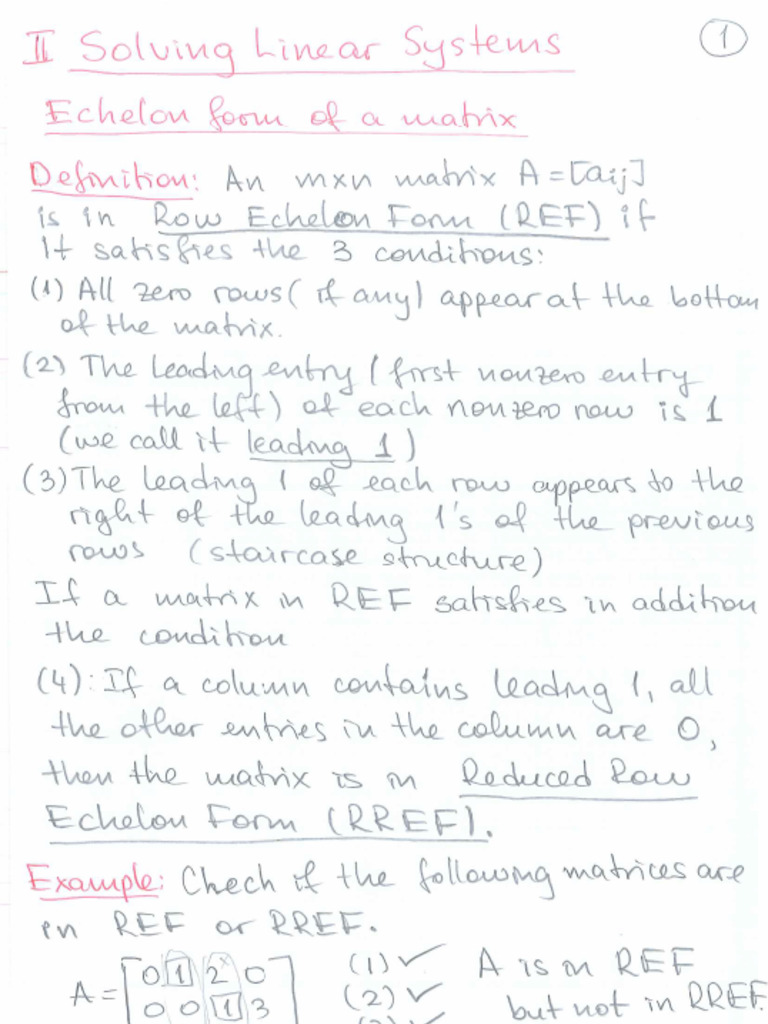 II Solving Linear Systems
1
Echelon form of a matrix
Definition: An mxn matrix A=[aij]
is in Row Echelon Form (REF) if
it satisfies the 3 conditions:
(1) All zero rows (if any) appear at the bottom
of the matrix.
(2) The leading entry (first nonzero entry
from the left) of each nonzero row is 1
(we call it leading 1)
(3) The leading 1 of each row appears to the
right of the leading 1's of the previous
rows (staircase structure)
If a matrix in REF satisfies in addition
the condition
(4): If a column contains leading 1, all
the other entries in the column are 0,
then the matrix is in Reduced Row
Echelon Form (RREF).
Example: Chech if the following matrices are
in REF or RREF.
A = [0 1 2 0 (1) ✓ A is in REF
0 0 1 3 (2) ✓ but not in RREF